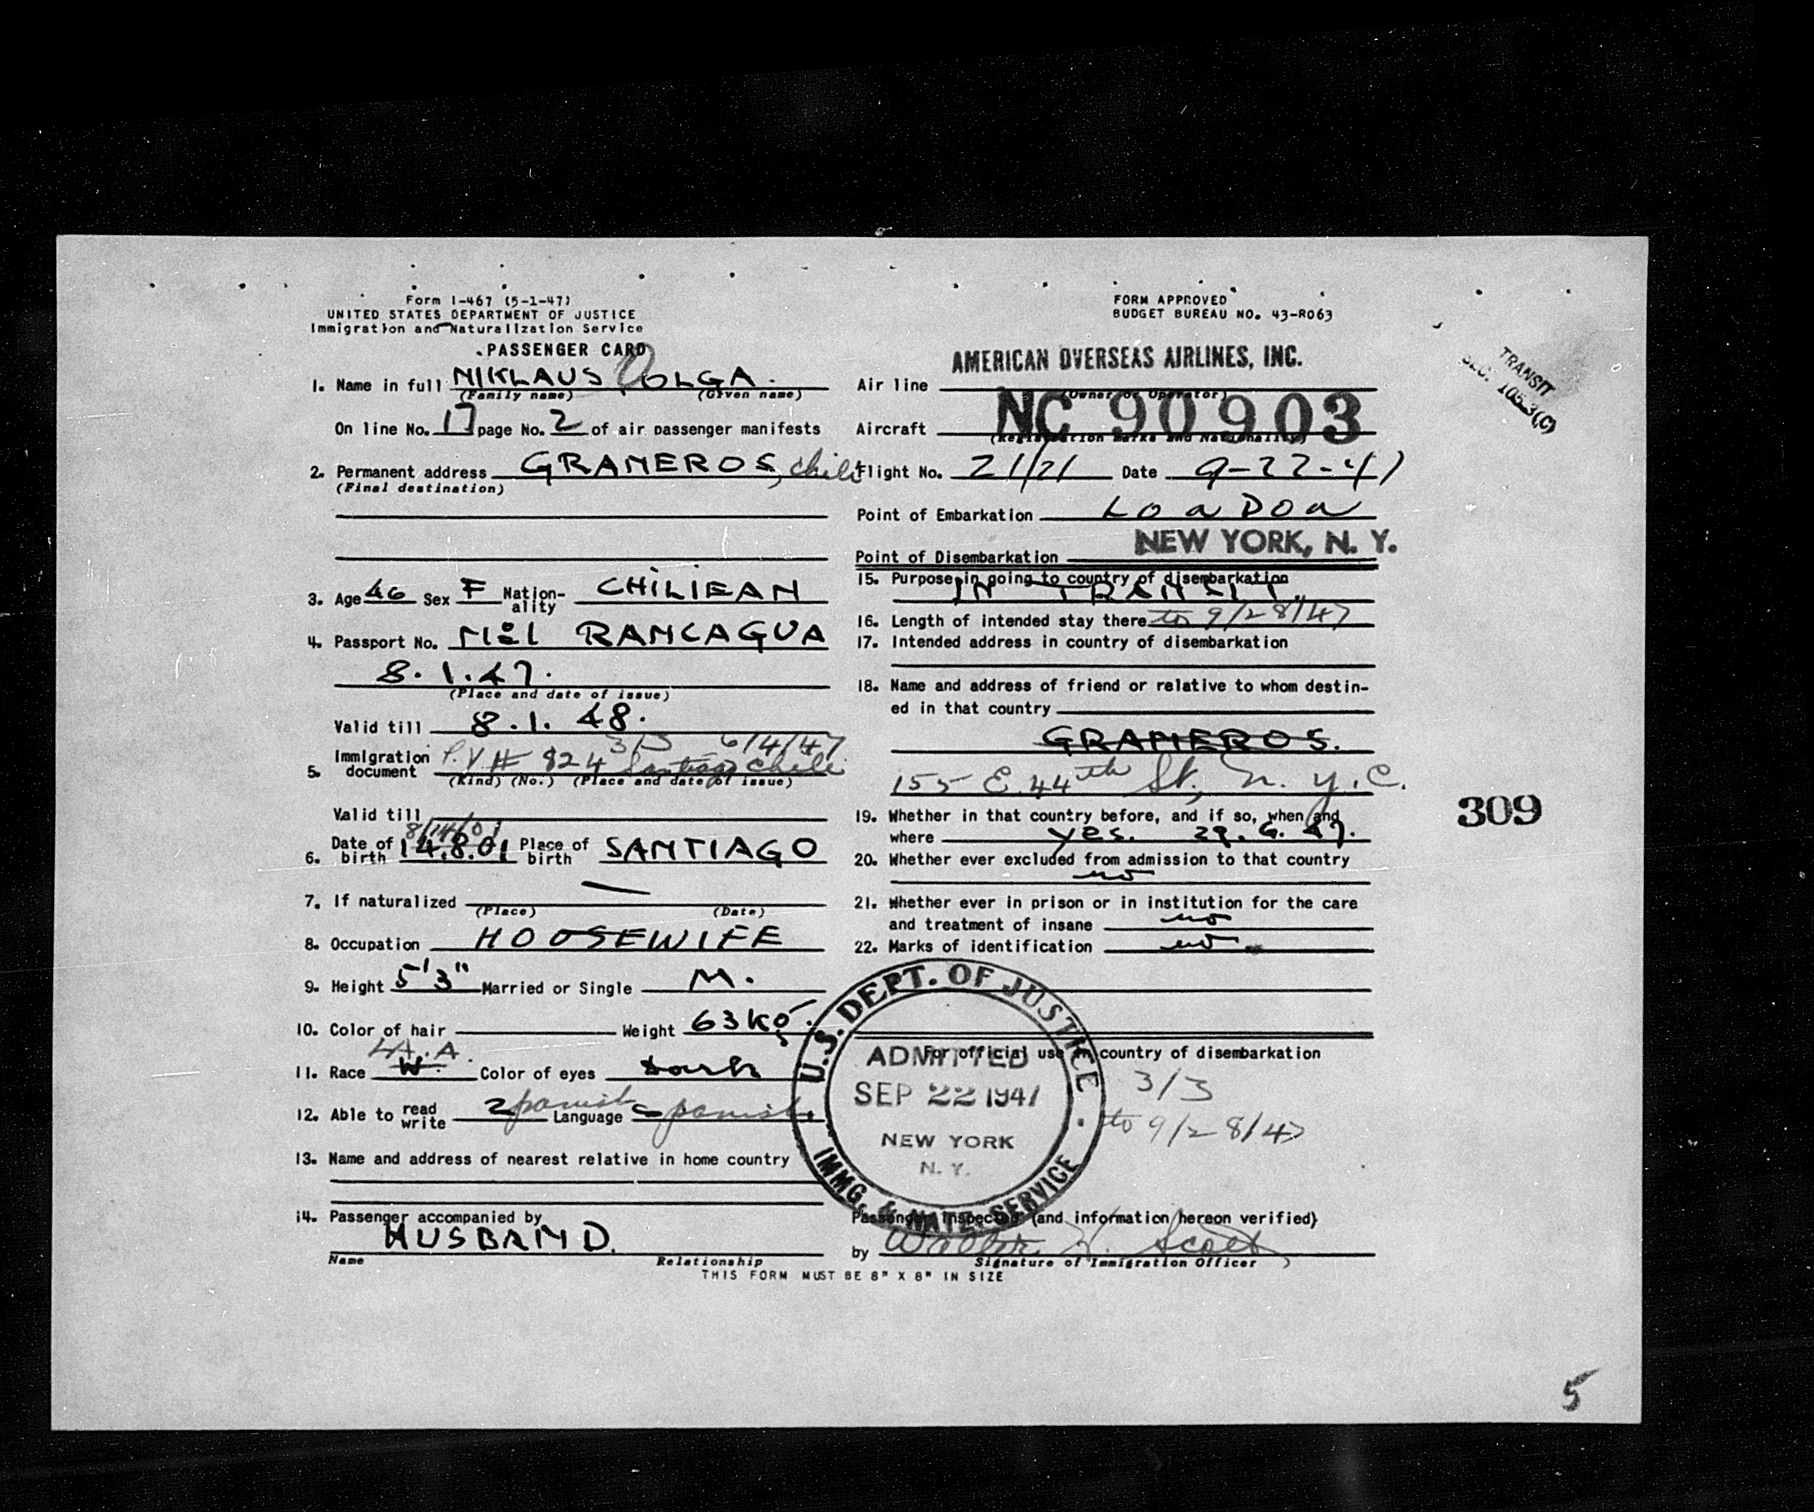 Form I-467 (5-1-47)
UNITED STATES DEPARTMENT OF JUSTICE
Immigration and Naturalization Service
PASSENGER CARD
1. Name in full NIKLAUS OLGA.
(Family name) (Given name)
On line No. 17 page No. 2 of air passenger manifests
2. Permanent address GRANEROS, Chile
(Final destination)
3. Age 46 Sex F Nation-ality CHILIEAN
4. Passport No. RANCAGUA
8.1.47.
(Place and date of issue)
Valid till 8.1.48.
3/3 6/4/47
5. Immigration document P.V # 824 Santiago Chile
(Kind) (No.) (Place and date of issue)
Valid till
8/14/01
6. Date of birth 14.8.01 Place of birth SANTIAGO
7. If naturalized —
(Place) (Date)
8. Occupation HOUSEWIFE
9. Height 5'3" Married or Single M.
10. Color of hair Weight 63 kg.
11. Race W. Color of eyes dark
12. Able to read write Spanish Language Spanish
13. Name and address of nearest relative in home country
14. Passenger accompanied by
HUSBAND.
Name Relationship
THIS FORM MUST BE 8" X 8" IN SIZE
FORM APPROVED
BUDGET BUREAU NO. 43-R063
AMERICAN OVERSEAS AIRLINES, INC.
Air line
(Owner or Operator)
Aircraft NC 90903
(Registration Marks and Nationality)
Flight No. 21/21 Date 9-22-47
Point of Embarkation LONDON
Point of Disembarkation NEW YORK, N. Y.
15. Purpose in going to country of disembarkation
IN TRANSIT.
16. Length of intended stay there to 9/28/47
17. Intended address in country of disembarkation
18. Name and address of friend or relative to whom destin-
ed in that country
GRANEROS.
155 E. 44th St., N.Y.C.
19. Whether in that country before, and if so, when and
where yes. 29.6.47.
20. Whether ever excluded from admission to that country
no
21. Whether ever in prison or in institution for the care
and treatment of insane no
22. Marks of identification no
For official use in country of disembarkation
3/3
to 9/28/47
U.S. DEPT. OF JUSTICE
ADMITTED
SEP 22 1947
NEW YORK
N. Y.
IMMG. & NATZ. SERVICE
Passenger inspected (and information hereon verified)
by Walter H. Scott
Signature of Immigration Officer
TRANSIT
SEC. 105.3(C)
309
5